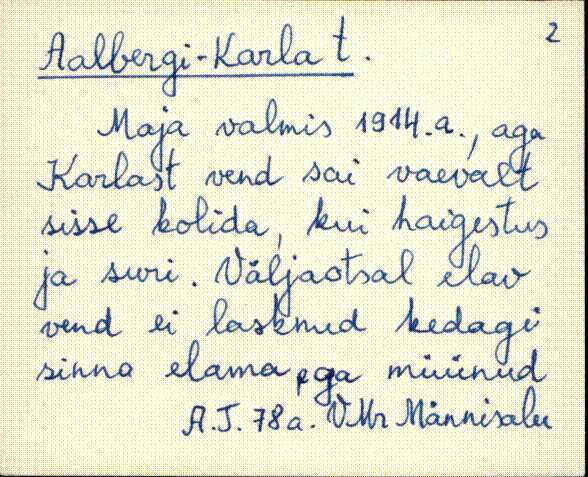 2
Aalbergi-Karla t.
Maja valmis 1914.a., aga
Karlast vend sai vaevalt
sisse kolida, kui haigestus
ja suri. Väljaotsal elav
vend ei lasknud kedagi
sinna elama ega müünud
A.J. 78a. VMr Männisalu